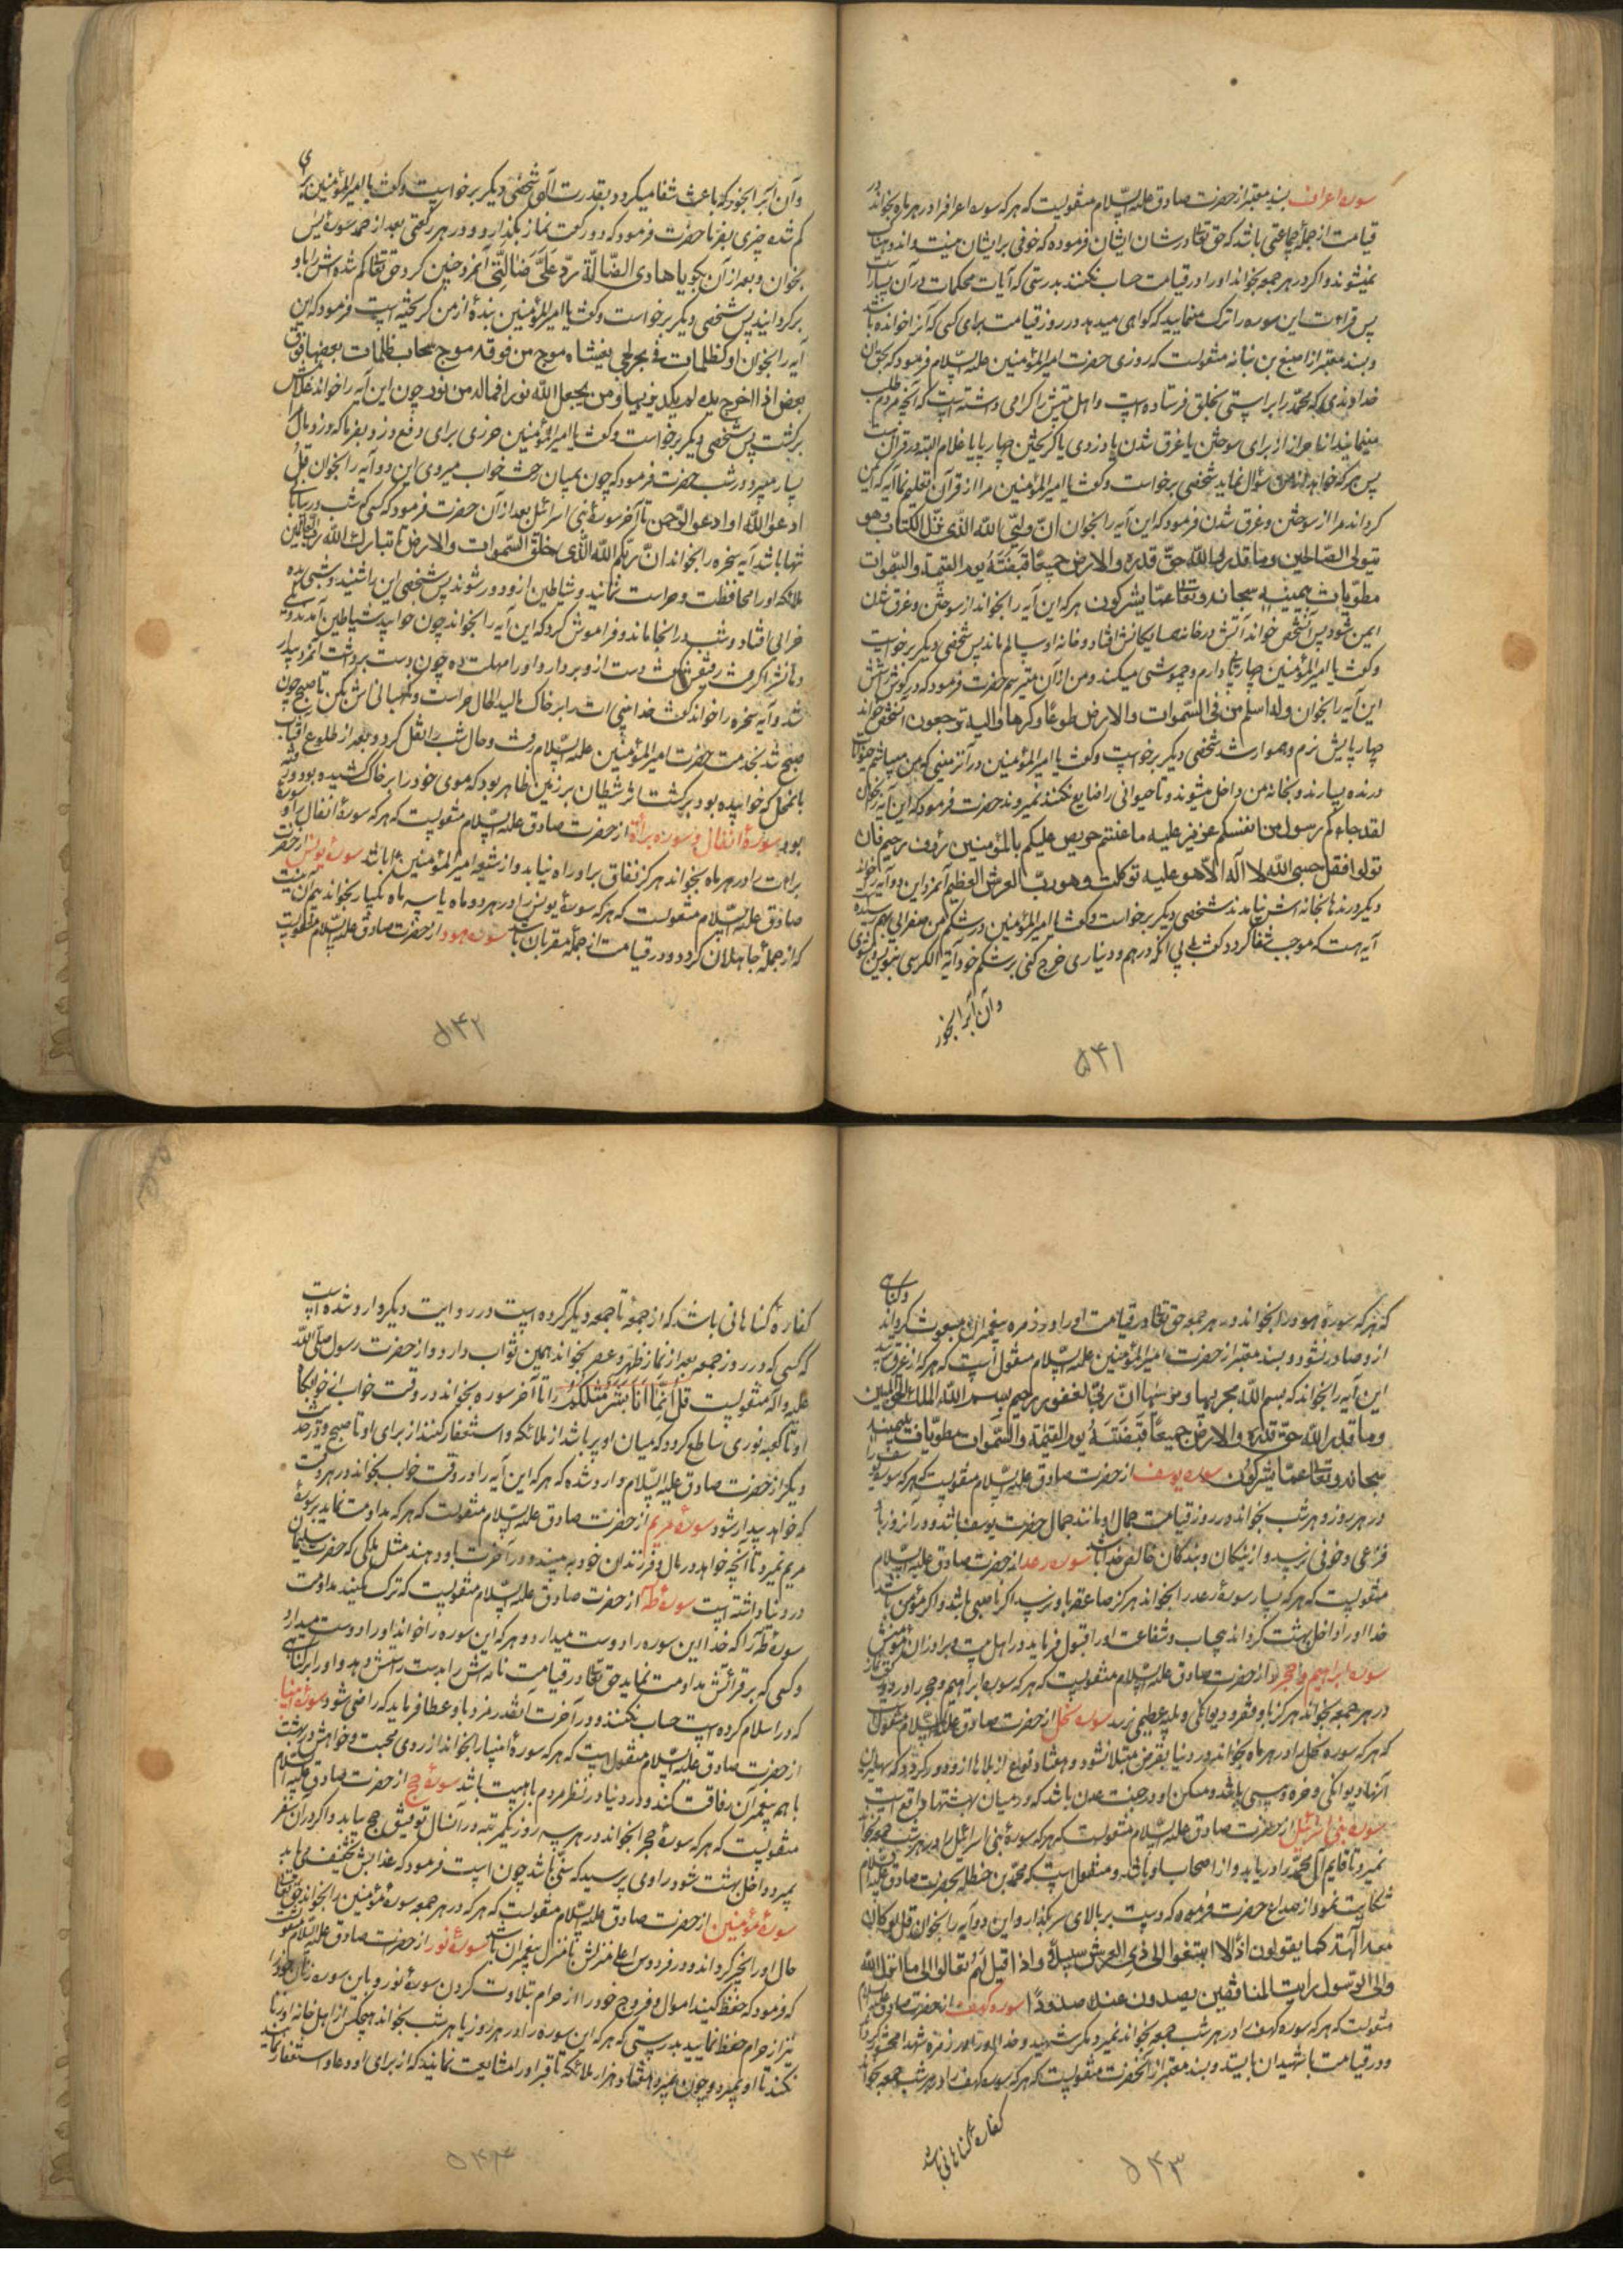 سوره اعراف بسند معتبر از حضرت صادق علیه السّلام منقولست که هر که سوره اعراف را در هر ماه بخواند در
قیامت از جملهٔ جماعتی باشد که حق تعالی در شان ایشان فرموده که خوفی بر ایشان نیست و اندوهناک
نمیشوند و اگر در هر جمعه بخواند او را در قیامت حساب نکنند بدرستی که آیات محکمات در آن بسیار است
پس قراءت این سوره را ترک منمایید که گواهی میدهد در روز قیامت برای کسی که آنرا خوانده باشد
و بسند معتبر از اصبغ بن نباته منقولست که روزی حضرت امیرالمؤمنین علیه السّلام فرمود که بحق آن
خداوندی که محمّد را براستی بخلق فرستاده است و اهل بیتش را گرامی داشته است که آنچه مردم طلب
مینمایند از حرزها از برای سوختن یا غرق شدن یا دزدی یا گریختن چهارپا یا غلام البته در قرآن هست
پس هر که خواهد از من سؤال نماید شخصی برخواست و گفت یا امیرالمؤمنین مرا از قرآن تعلیم نما آیه که ایمن
گرداند مرا از سوختن و غرق شدن فرمود که این آیه را بخوان انّ ولیّی الله الذی نزّل الکتاب وهو
یتولی الصّالحین وما قدروا اللّه حقّ قدره والارض جمیعًا قبضته یوم القیمة والسّموات
مطوّیات بیمینه سبحانه وتعالی عمّا یشرکون هر که این آیه را بخواند از سوختن و غرق شدن
ایمن شود پس آن شخص خواند آتش در خانهٔ همسایگانش افتاد و خانه او سالم ماند پس شخصی دیگر برخواست
و گفت یا امیرالمؤمنین چارپایی دارم و چموشی میکند و من از آن میترسم حضرت فرمود که در گوش راستش
این آیه را بخوان وله اسلم من فی السّموات والارض طوعًا وکرها والیه ترجعون آن شخص خواند
چهارپایش نرم و هموار شد شخصی دیگر برخواست و گفت یا امیرالمؤمنین در آن زمینی که من میباشم حیوانات
درنده بسیارند و بخانه من داخل میشوند و تا حیوانی را ضایع نکنند نمیروند حضرت فرمود که این آیه را بخوان
لقد جاءکم رسول من انفسکم عزیز علیه ما عنتم حریص علیکم بالمؤمنین رؤف رحیم فان
تولوا فقل حسبی اللّه لا اله الّا هو علیه توکلت وهو ربّ العرش العظیم آنمرد این دو آیه را خواند
دیگر درندها بخانه‌اش نیامدند شخصی دیگر برخواست و گفت یا امیرالمؤمنین در شکم من صفرایی بهم رسیده
آیه هست که موجب شفا گردد گفت بلی بی آنکه درهم و دیناری خرج کنی بر شکم خود آیة الکرسی بنویس و بشوی
و آن آبرا بخور
۵۴۱
و آن آبرا بخور که باعث شفا میگردد بقدرت الهی شخصی دیگر برخواست و گفت یا امیرالمؤمنین برای
گم شده چیزی بفرما حضرت فرمود که دو رکعت نماز بگذار و در هر رکعتی بعد از حمد سورهٔ یس
بخوان و بعد از آن بگو یا هادی الضّالّة ردّ علیّ ضالّتی آنمرد چنین کرد حق تعالی گم شده‌اش را باو
برگردانید پس شخصی دیگر برخواست و گفت یا امیرالمؤمنین بندهٔ از من گریخته است فرمود که این
آیه را بخوان او کظلمات فی بحر لجی یغشاه موج من فوقه موج من فوقه سحاب ظلمات بعضها فوق
بعض اذا اخرج یده لم یکد یریها ومن لم یجعل اللّه له نورا فماله من نور چون این آیه را خواند غلامش
برگشت پس شخصی دیگر برخواست و گفت یا امیرالمؤمنین حرزی برای دفع دزد بفرما که دزد مال
بسیار میبرد در شب حضرت فرمود که چون بمیان رخت خواب میروی این دو آیه را بخوان قل
ادعوا اللّه او ادعوا الرّحمن تا آخر سورهٔ بنی اسرائیل بعد از آن حضرت فرمود که کسی که شب در بیابان
تنها باشد آیه سخره را بخواند انّ ربّکم اللّه الذی خلق السّموات والارض تا تبارک اللّه ربّ العالمین
ملائکه او را محافظت و حراست نمایند و شیاطین ازو دور شوند پس شخصی این را شنید و شبی بده
خرابی افتاد و شب در انجا ماند و فراموش کرد که این آیه را بخواند چون خوابید شیاطین آمدند
شد و آیه سخره را خواند
صبح شد بخدمت حضرت امیرالمؤمنین علیه السّلام رفت و حال شب را نقل کرد و بعد از طلوع آفتاب
بانمحل که خوابیده بود برگشت اثر شیطان بر زمین ظاهر بود که موی خود را بر خاک کشیده بود و رفته
بود سورهٔ انفال و سوره براءة از حضرت صادق علیه السّلام منقولست که هر که سورهٔ انفال و سوره
براءت را در هر ماه بخواند هرگز نفاق براو راه نیابد و از شیعه امیرالمؤمنین باشد سوره یونس از حضرت
صادق علیه السّلام منقولست که هر که سورهٔ یونس را در هر دو ماه یا سه ماه یکبار بخواند بیم آن نیست
که از جملهٔ جاهلان گردد و در قیامت از جملهٔ مقربان باشد سوره هود از حضرت صادق علیه السّلام منقولست
۵۴۲
که هر که سورهٔ هود را بخواند در هر جمعه حق تعالی در قیامت او را در زمره پیغمبران مبعوث گرداند و گناهی
ازو صادر نشود و بسند معتبر از حضرت امیرالمؤمنین علیه السّلام منقول است که هر که از غرق ترسد
این آیه را بخواند که بسم اللّه مجریها ومرسیها انّ ربّی لغفور رحیم بسم اللّه الملک الحق المبین
وما قدروا اللّه حقّ قدره والارض جمیعًا قبضته یوم القیمة والسّموات مطویّات بیمینه
سبحانه وتعالی عمّا یشرکون سوره یوسف از حضرت صادق علیه السّلام منقولست که هر که سوره یوسف را
در هر روز و هر شب بخواند در روز قیامت جمال او مانند جمال حضرت یوسف باشد و در آنروز باو
فزعی و خوفی نرسد و از نیکان و بندگان خالص خدا باشد سوره رعد از حضرت صادق علیه السّلام
منقولست که هر که بسیار سورهٔ رعد را بخواند هرگز صاعقه باو نرسد اگر ناصبی باشد و اگر مؤمن باشد
خدا او را داخل بهشت گرداند بیحساب و شفاعت او را قبول فرماید در اهل بیت و برادران مؤمنش
سوره ابراهیم و حجر از حضرت صادق علیه السّلام منقولست که هر که سوره ابراهیم و حجر را در دو رکعت نماز
در هر جمعه بخواند هرگز باو فقر و دیوانگی و بلیه عظیمی نرسد سوره نحل از حضرت صادق علیه السّلام منقول است
که هر که سوره نحل را در هر ماه بخواند در دنیا بقرض مبتلا نشود و هفتاد نوع از بلاها ازو دور گردد که سهلترین
آنها دیوانگی و خوره و پیسی باشد و مسکن او در جنت عدن باشد که در میان بهشتها واقع است
سوره بنی اسرائیل از حضرت صادق علیه السّلام منقولست که هر که سورهٔ بنی اسرائیل را در هر شب جمعه بخواند
نمیرد تا قایم آل محمّد را دریابد و از اصحاب او باشد و منقول است که محمّد بن حنظله بحضرت صادق علیه السّلام
شکایت نمود از صداع حضرت فرمود که دست بر بالای سر بگذار و این دو آیه را بخوان قل لو کان
معه آلهة کما یقولون اذًا لا ابتغوا الی ذی العرش سبیلًا واذا قیل لهم تعالوا الی ما انزل اللّه
والی الرّسول رایت المنافقین یصدون عنک صدودًا سوره کهف از حضرت صادق علیه السّلام
منقولست که هر که سوره کهف را در هر شب جمعه بخواند نمیرد مگر شهید و خدا او را در زمره شهدا محشور گرداند
و در قیامت با شهیدان بایستد و بسند معتبر از آنحضرت منقولست که هر که سوره کهف را در هر شب جمعه بخواند
کفارهٔ گناهانی باشد
۵۴۳
کفارهٔ گناهانی باشد که از جمعهٔ تا جمعه دیگر کرده است و در روایت دیگر وارد شده است
که کسی که در روز جمعه بعد از نماز ظهر و عصر بخواند همین ثواب دارد و از حضرت رسول صلّی اللّه
علیه واله منقولست قل انّما انا بشر مثلکم را تا آخر سوره بخواند در وقت خواب از خوابگاه
او تا کعبه نوری ساطع گردد که میان او پر باشد از ملائکه و استغفار کنند از برای او تا صبح و در حدیث
دیگر از حضرت صادق علیه السّلام وارد شده که هر که این آیه را در وقت خواب بخواند در هر وقت
که خواهد بیدار شود سورهٔ مریم از حضرت صادق علیه السّلام منقولست که هر که مداومت نماید بسورهٔ
مریم نمیرد تا آنچه خواهد در مال و فرزندان خود به بیند و در آخرت باو دهند مثل ملکی که حضرت سلیمان
در دنیا داشته است سورهٔ طه از حضرت صادق علیه السّلام منقولست که ترک مکنید مداومت
سورهٔ طه را که خدا این سوره را دوست میدارد و هر که این سوره را خواند او را دوست میدارد
و کسی که بر قرائتش مداومت نماید حق تعالی در قیامت نامه‌اش را بدست راستش دهد و او را بر گناهی
که در اسلام کرده است حساب نکنند و در آخرت آنقدر مزد باو عطا فرماید که راضی شود سورهٔ انبیا
از حضرت صادق علیه السّلام منقول است که هر که سورهٔ انبیا را بخواند از روی محبت و خواهش در بهشت
با همه پیغمبران رفاقت کند و در دنیا در نظر مردم با هیبت باشد سورهٔ حج از حضرت صادق علیه السّلام
منقولست که هر که سورهٔ حج را بخواند در هر سه روز یکمرتبه در آنسال توفیق حج بیابد و اگر در آن سفر
بمیرد داخل بهشت شود راوی پرسید که سنی باشد چون است فرمود که عذابش تخفیف می یابد
سورهٔ مؤمنین از حضرت صادق علیه السّلام منقولست که هر که در هر جمعه سورهٔ مؤمنین را بخواند حق تعالی
حال او را بخیر گرداند و در فردوس اعلی منزلش با منزل پیغمبران باشد سورهٔ نور از حضرت صادق علیه السّلام منقولست
که فرمود که حفظ کنید اموال و فروج خود را از حرام بتلاوت کردن سورهٔ نور و باین سوره زنان خود را
نیز از حرام حفظ نمایید بدرستی که هر که این سوره را در هر روز یا هر شب بخواند هیچکس از اهل خانه او زنا
نکند تا او بمیرد و چون بمیرد هفتاد هزار ملائکه تا قبر او را مشایعت نمایند که از برای او دعا و استغفار نمایند
۵۴۴